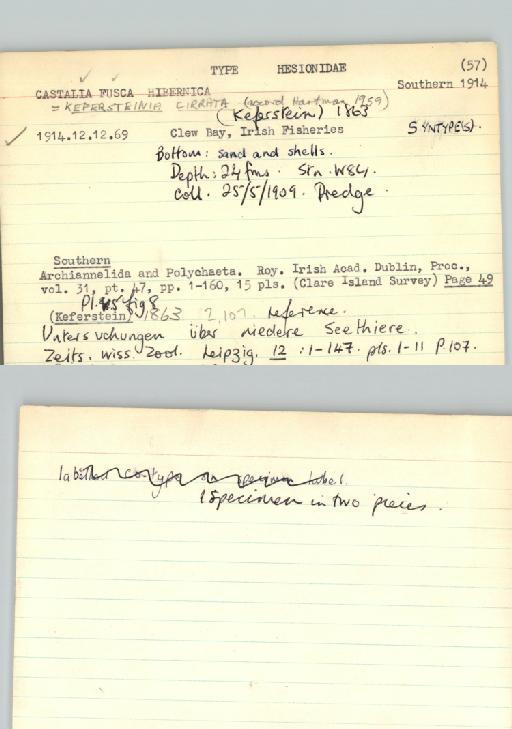 TYPE HESIONIDAE (57)
CASTALIA FUSCA HIBERNICA Southern 1914
= KEPERSTEINIA CIRRATA (record Hartman 1959)
(Keferstein) 1863
1914.12.12.69 Clew Bay, Irish Fisheries SYNTYPE(S).
Bottom: sand and shells.
Depth: 24 fms. Stn. W84.
Coll. 25/5/1909. Dredge.
Southern
Archiannelida and Polychaeta. Roy. Irish Acad. Dublin, Proc.,
vol. 31, pt. 47, pp. 1-160, 15 pls. (Clare Island Survey) Page 49
Pl. 5 fig 8
(Keferstein) 1863 2,107. reference.
Untersuchungen über niedere Seethiere.
Zeits. wiss. Zool. Leipzig. 12 : 1-147. pls. 1-11 P.107.
labelled cotype on specimen label.
1 Specimen in two pieces.